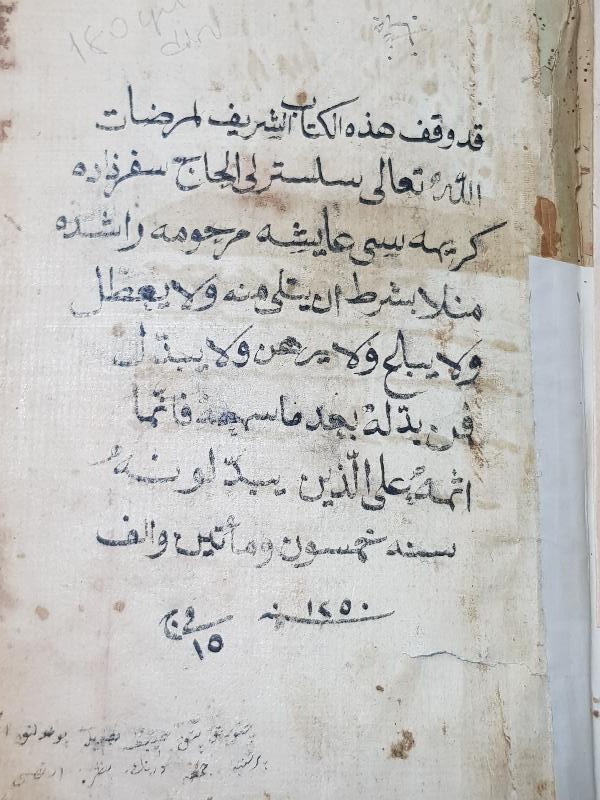 قد وقف هذه الكتاب الشريف لمرضات
الله تعالى سلسترلى الحاج سفرزاده
كريمه سى عايشه مرحومه راشده
منلا بشرط ان يتلى منه ولا يعطل
ولا يباع ولا يرهن ولا يبدل
فمن بدله بعد ما سمعه فانما
اثمه على الذين يبدلونه
سنه خمسون ومأتين والف
سنه ١٢٥٠
١٥